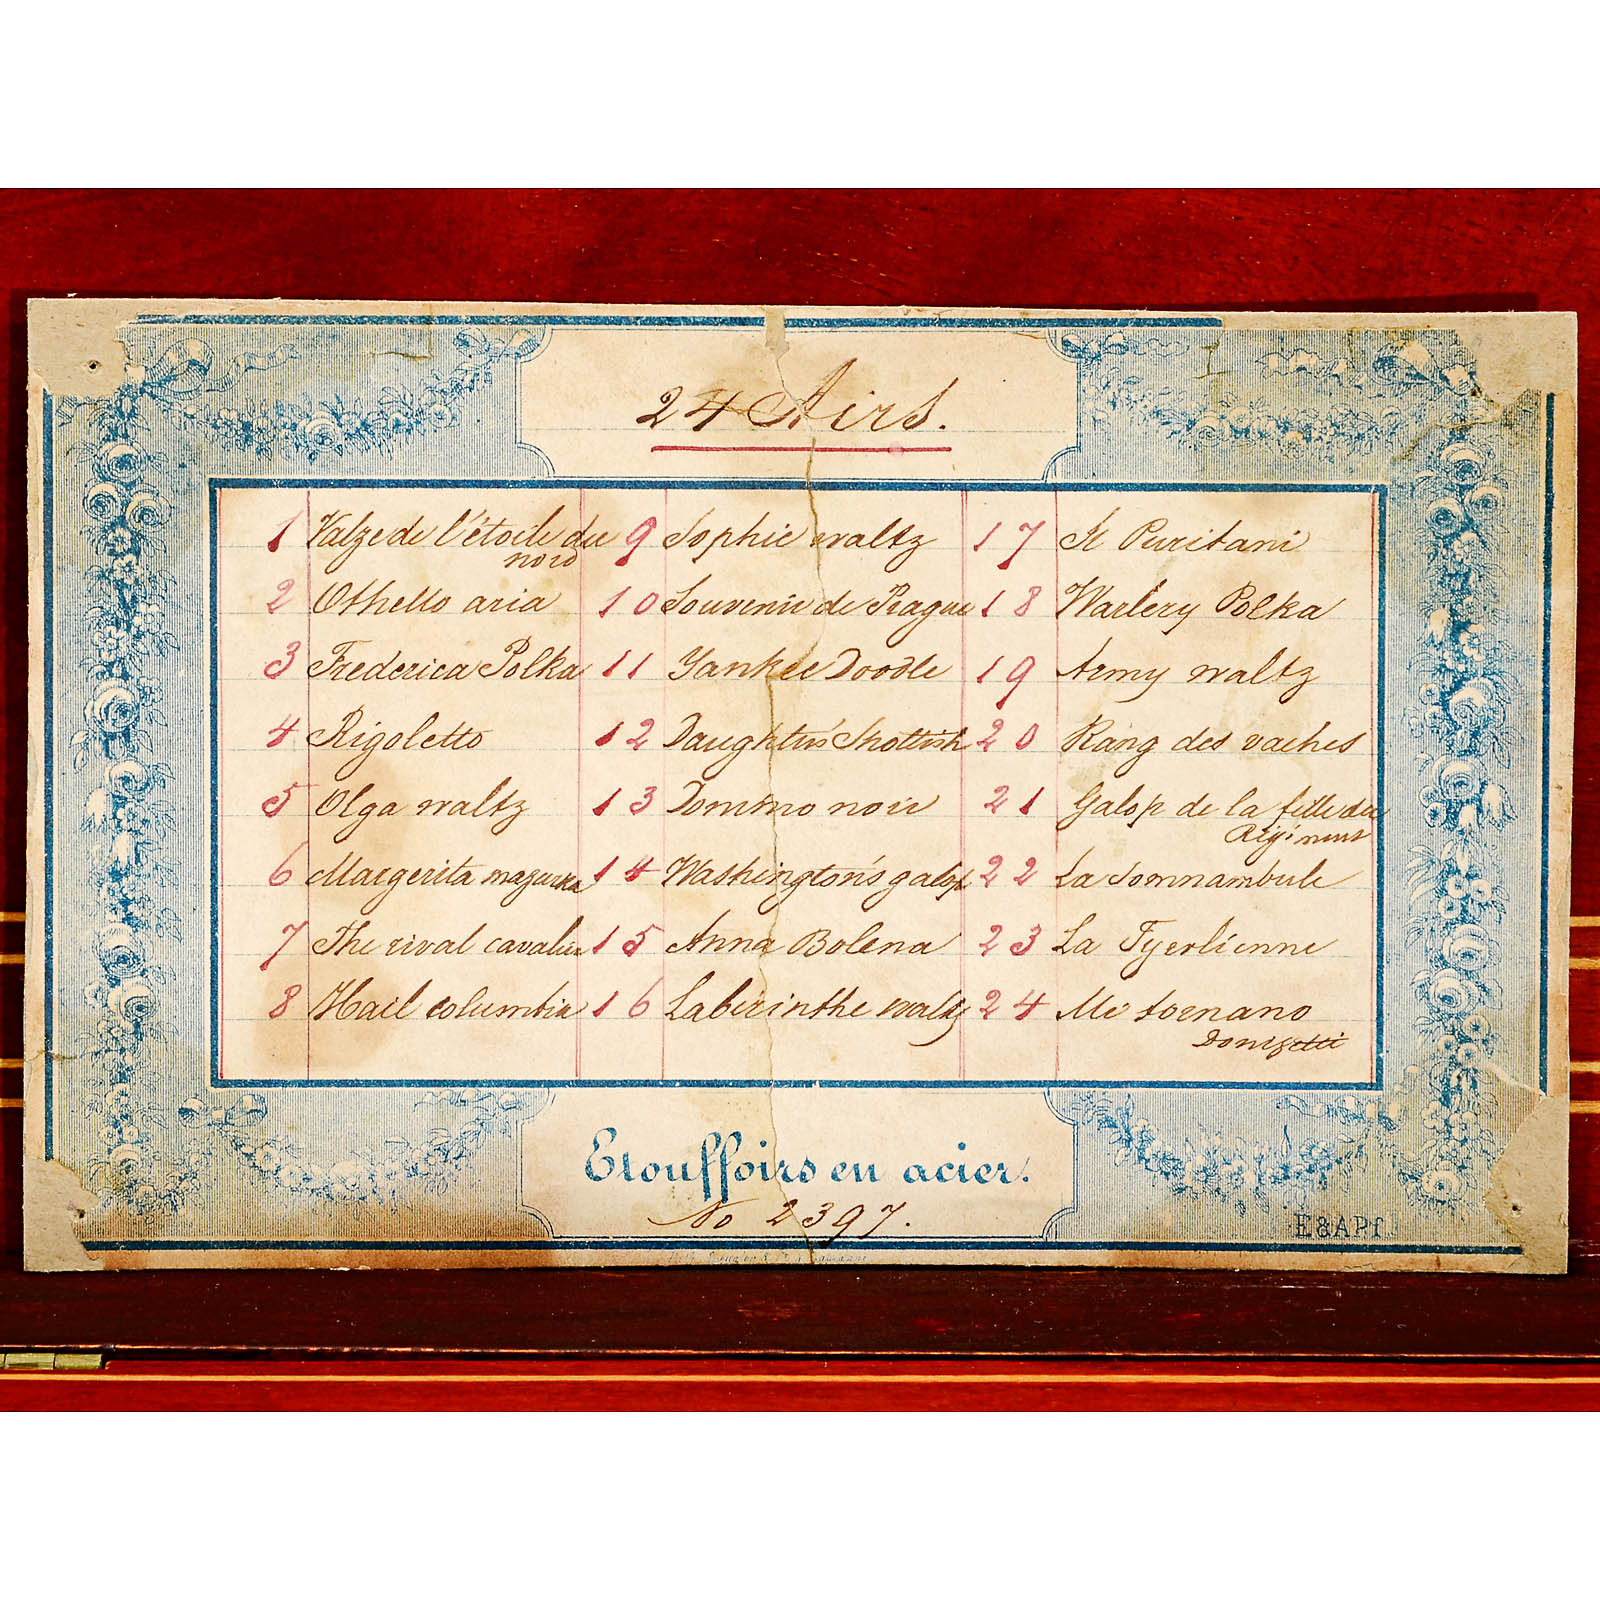 24 Airs.
1 Valze de l'étoile du
nord
2 Othello aria
3 Frederica Polka
4 Rigoletto
5 Olga waltz
6 Margerita mazurka
7 The rival cavalier
8 Hail columbia
9 Sophie waltz
10 Souvenir de Prague
11 Yankee Doodle
12 Daughter's Shottish
13 Dommo noir
14 Washington's galop
15 Anna Bolena
16 Labirinthe waltz
17 Il Puritani
18 Warlery Polka
19 Army waltz
20 Rang des vaches
21 Galop de la fille du
Régiment
22 La Somnambule
23 La Tyerlienne
24 Mi tornano
Donizetti
Etouffoirs en acier.
No 2397.
E&APf.